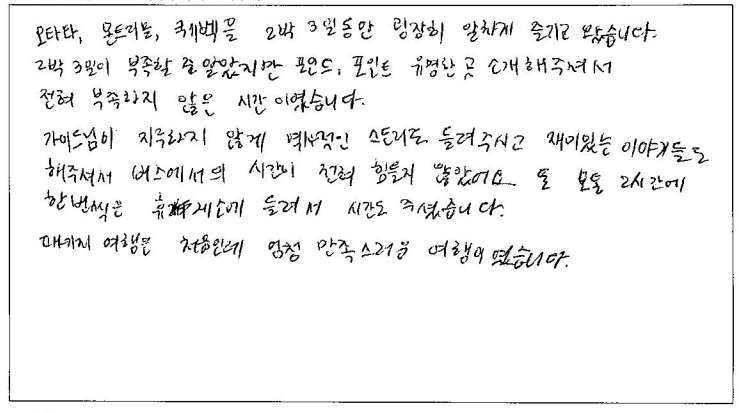 오타와, 몬트리올, 퀘벡을 2박 3일동안 굉장히 알차게 즐기고 왔습니다.
2박 3일이 부족할 줄 알았지만 포인트, 포인트 유명한 곳 소개해주셔서
전혀 부족하지 않은 시간이였습니다.
가이드님이 지루하지 않게 역사적인 스토리도 들려주시고 재미있는 이야기들도
해주셔서 버스에서의 시간이 전혀 힘들지 않았어요. 또 보통 2시간에
한번씩은 휴게소에 들려서 시간도 주셨습니다.
패키지 여행은 처음인데 엄청 만족스러운 여행이였습니다.